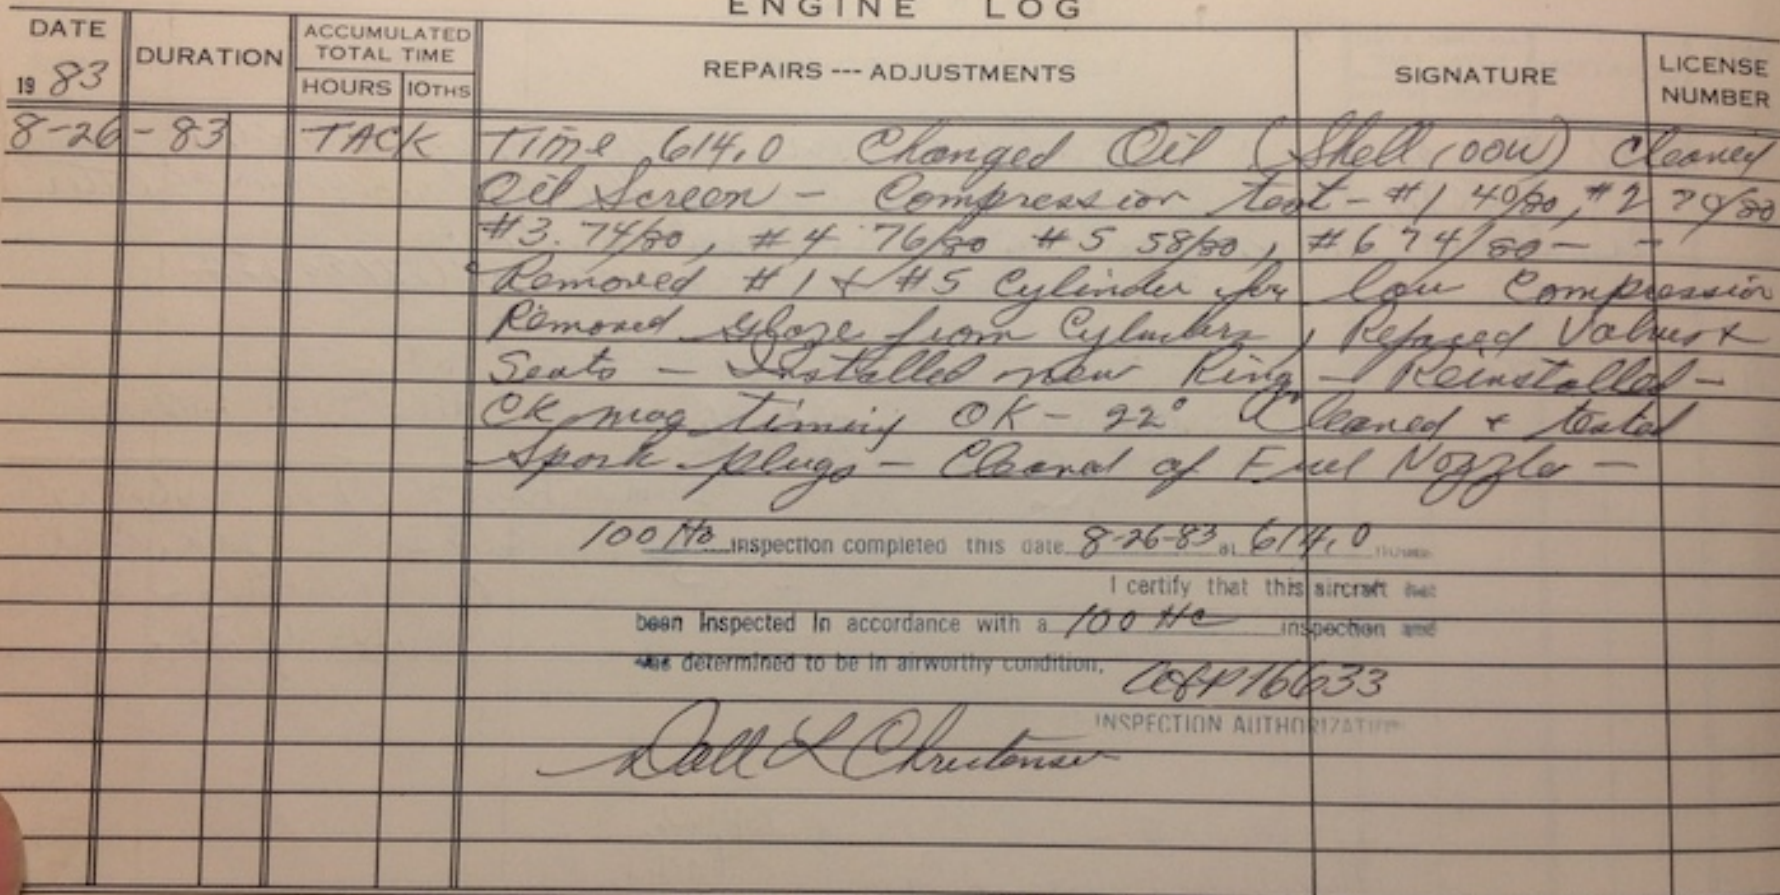 ENGINE LOG
DATE
DURATION
ACCUMULATED TOTAL TIME
REPAIRS --- ADJUSTMENTS
SIGNATURE
LICENSE NUMBER
19 83
HOURS 10THS
8-26-83 TACK Time 614.0 Changed Oil (Shell 100W) Cleaned
Oil Screen - Compression test - #1 40/80, #2 70/80
#3. 74/80, #4 76/80 #5 58/80, #6 74/80 - -
Removed #1 & #5 Cylinder for low Compression
Removed Glaze from Cylinders, Refaced Valves &
Seats - Installed new Rings - Reinstalled -
CK mag timing OK - 22° Cleaned & tested
Spark plugs - Cleaned of Fuel Nozzle -
100 Hr inspection completed this date 8-26-83 at 614.0 hours
I certify that this aircraft has
been inspected in accordance with a 100 Hr inspection and
was determined to be in airworthy condition.
16633
INSPECTION AUTHORIZATION
Dall L Christensen